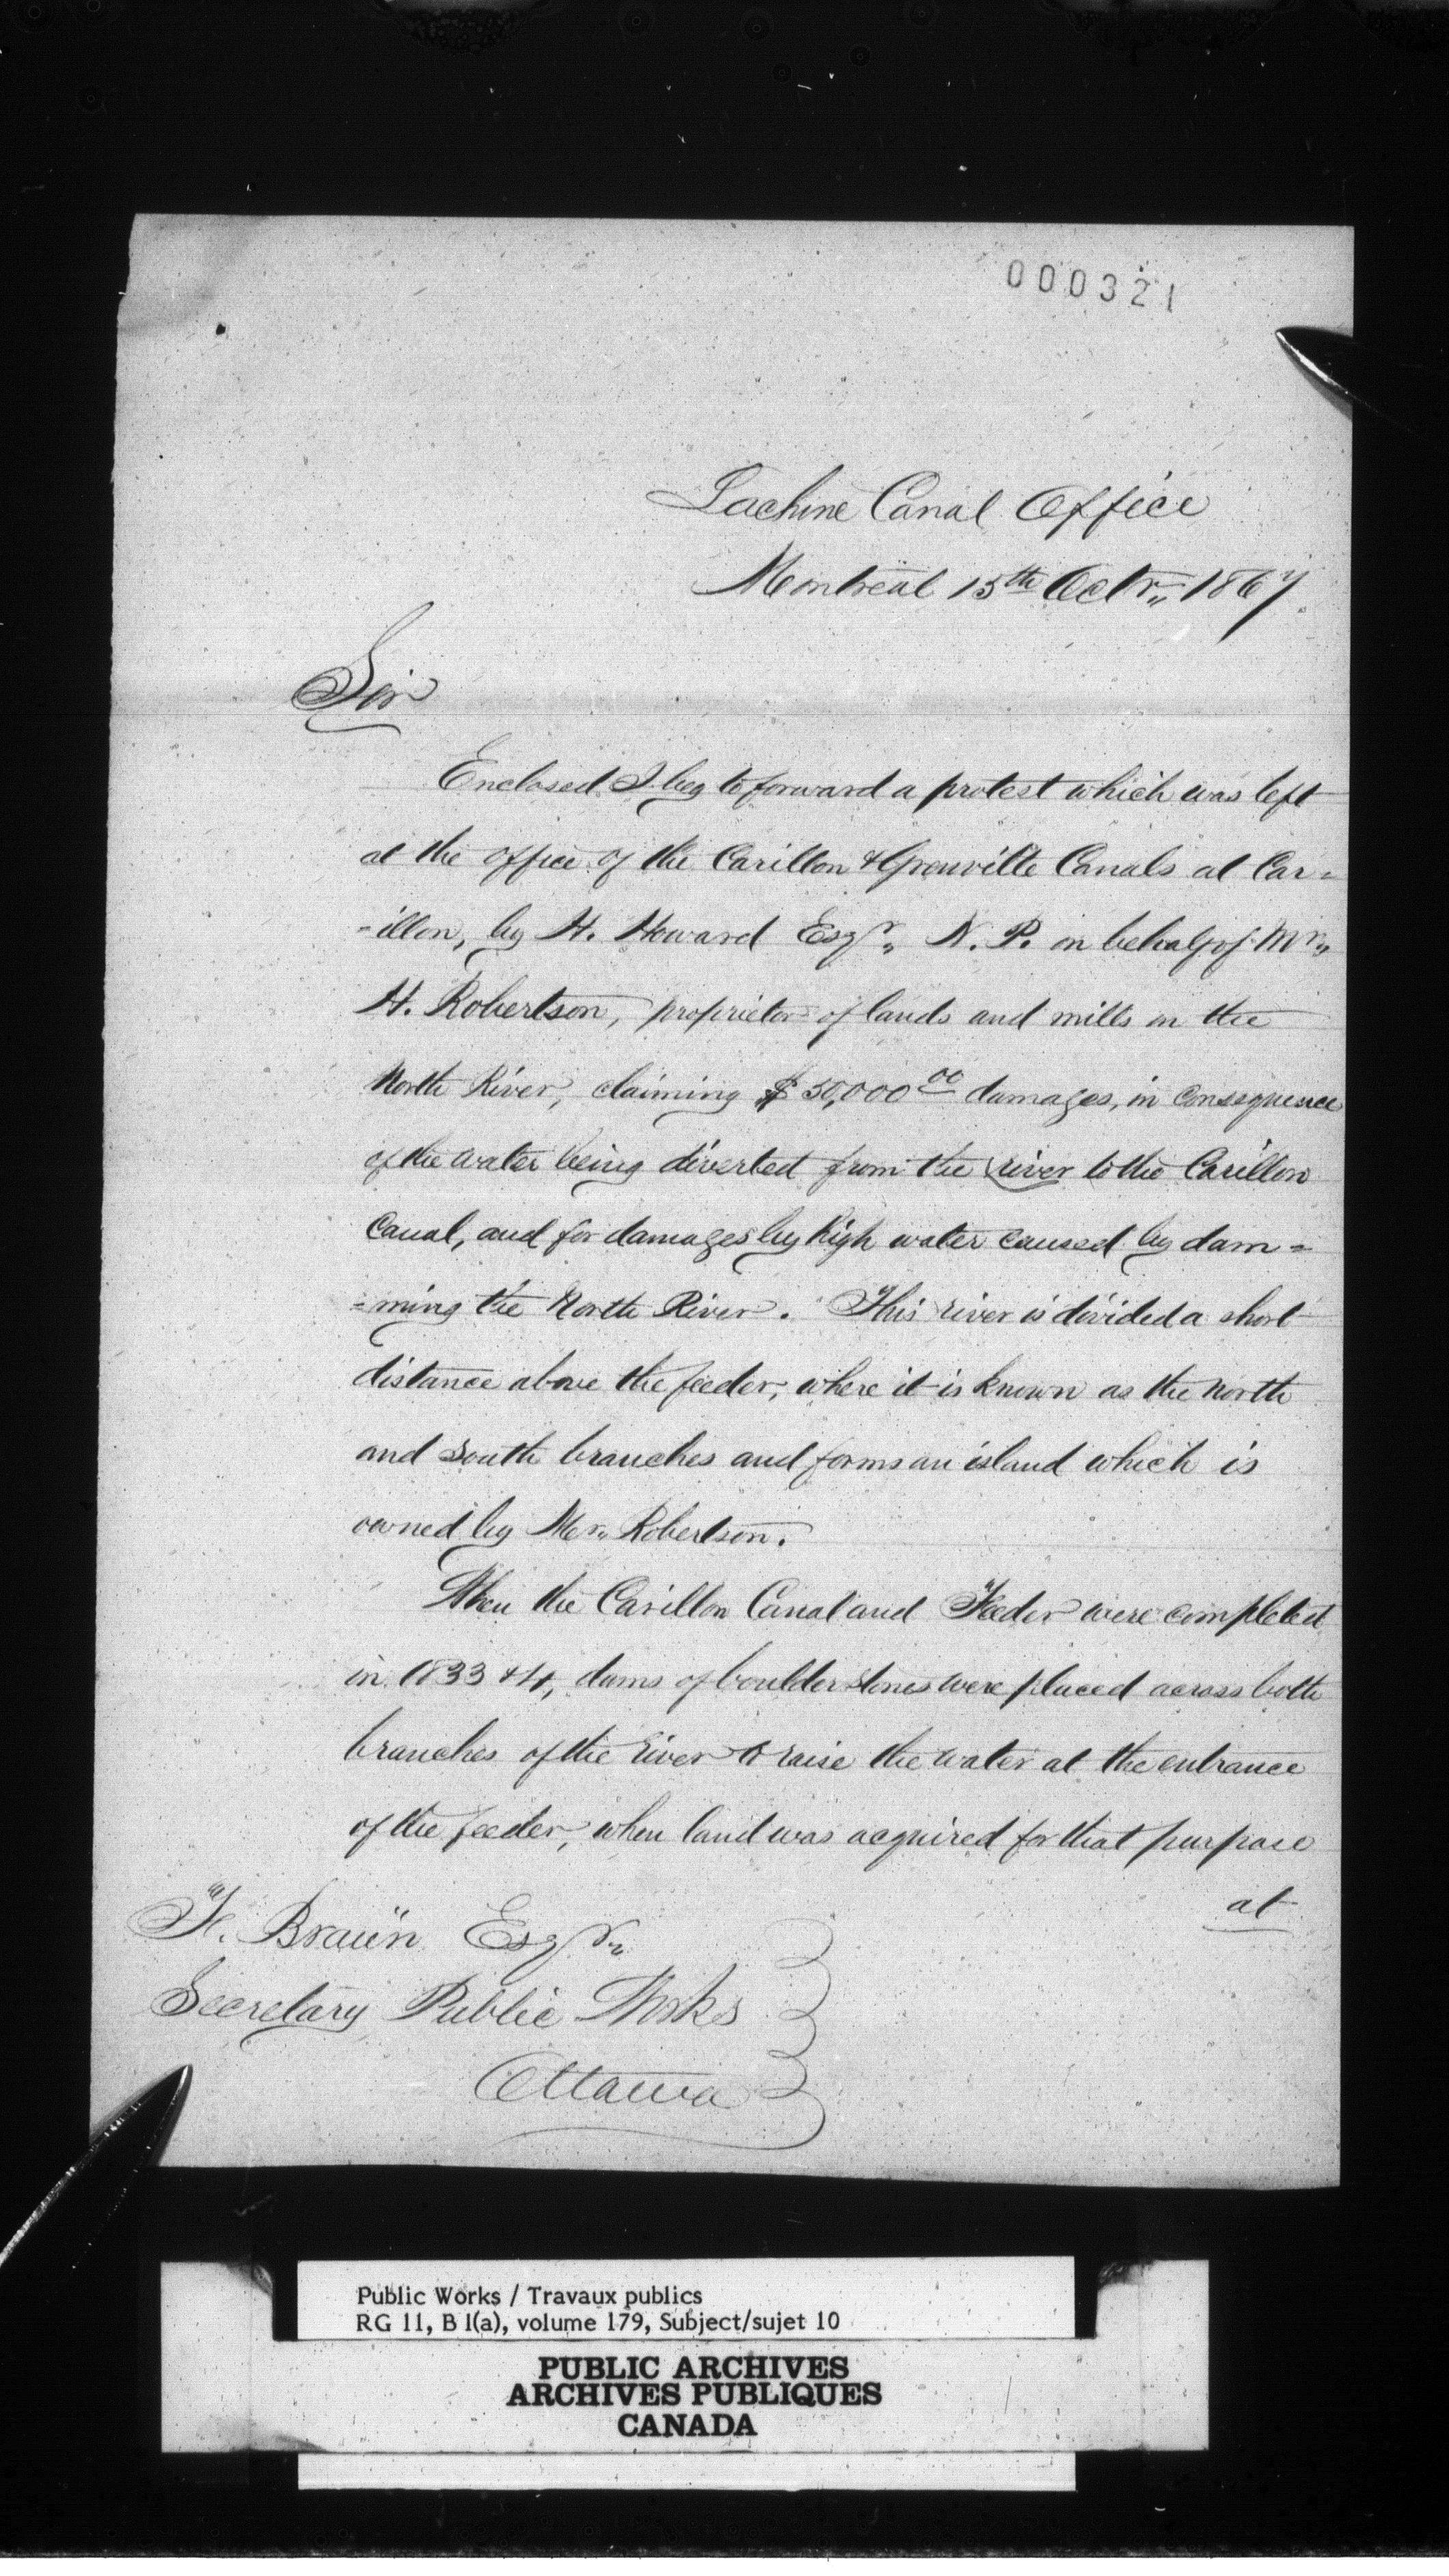 000321
Lachine Canal Office
Montreal 15th Octr„ 1867.
Sir
Enclosed I beg to forward a protest which was left
at the office of the Carillon & Grenville Canals at Car=
=illon, by H. Howard Esqr„ N. P. in behalf of Mr„
H. Robertson, proprietor of lands and mills in the
North River, claiming $50,000 00 damages, in consequence
of the water being diverted from the river to the Carillon
Canal, and for damages by high water caused by dam=
=ming the North River. This river is divided a short
distance above the feeder, where it is known as the north
and south branches and forms an island which is
owned by Mr„ Robertson.
When the Carillon Canal and Feeder were completed
in 1833 & 4, dams of boulder stones were placed across both
branches of the river to raise the water at the entrance
of the feeder, when land was acquired for that purpose
at
F. Braün Esqr„
Secretary Public Works
Ottawa
Public Works / Travaux publics
RG 11, B 1(a), volume 179, Subject/sujet 10
PUBLIC ARCHIVES
ARCHIVES PUBLIQUES
CANADA